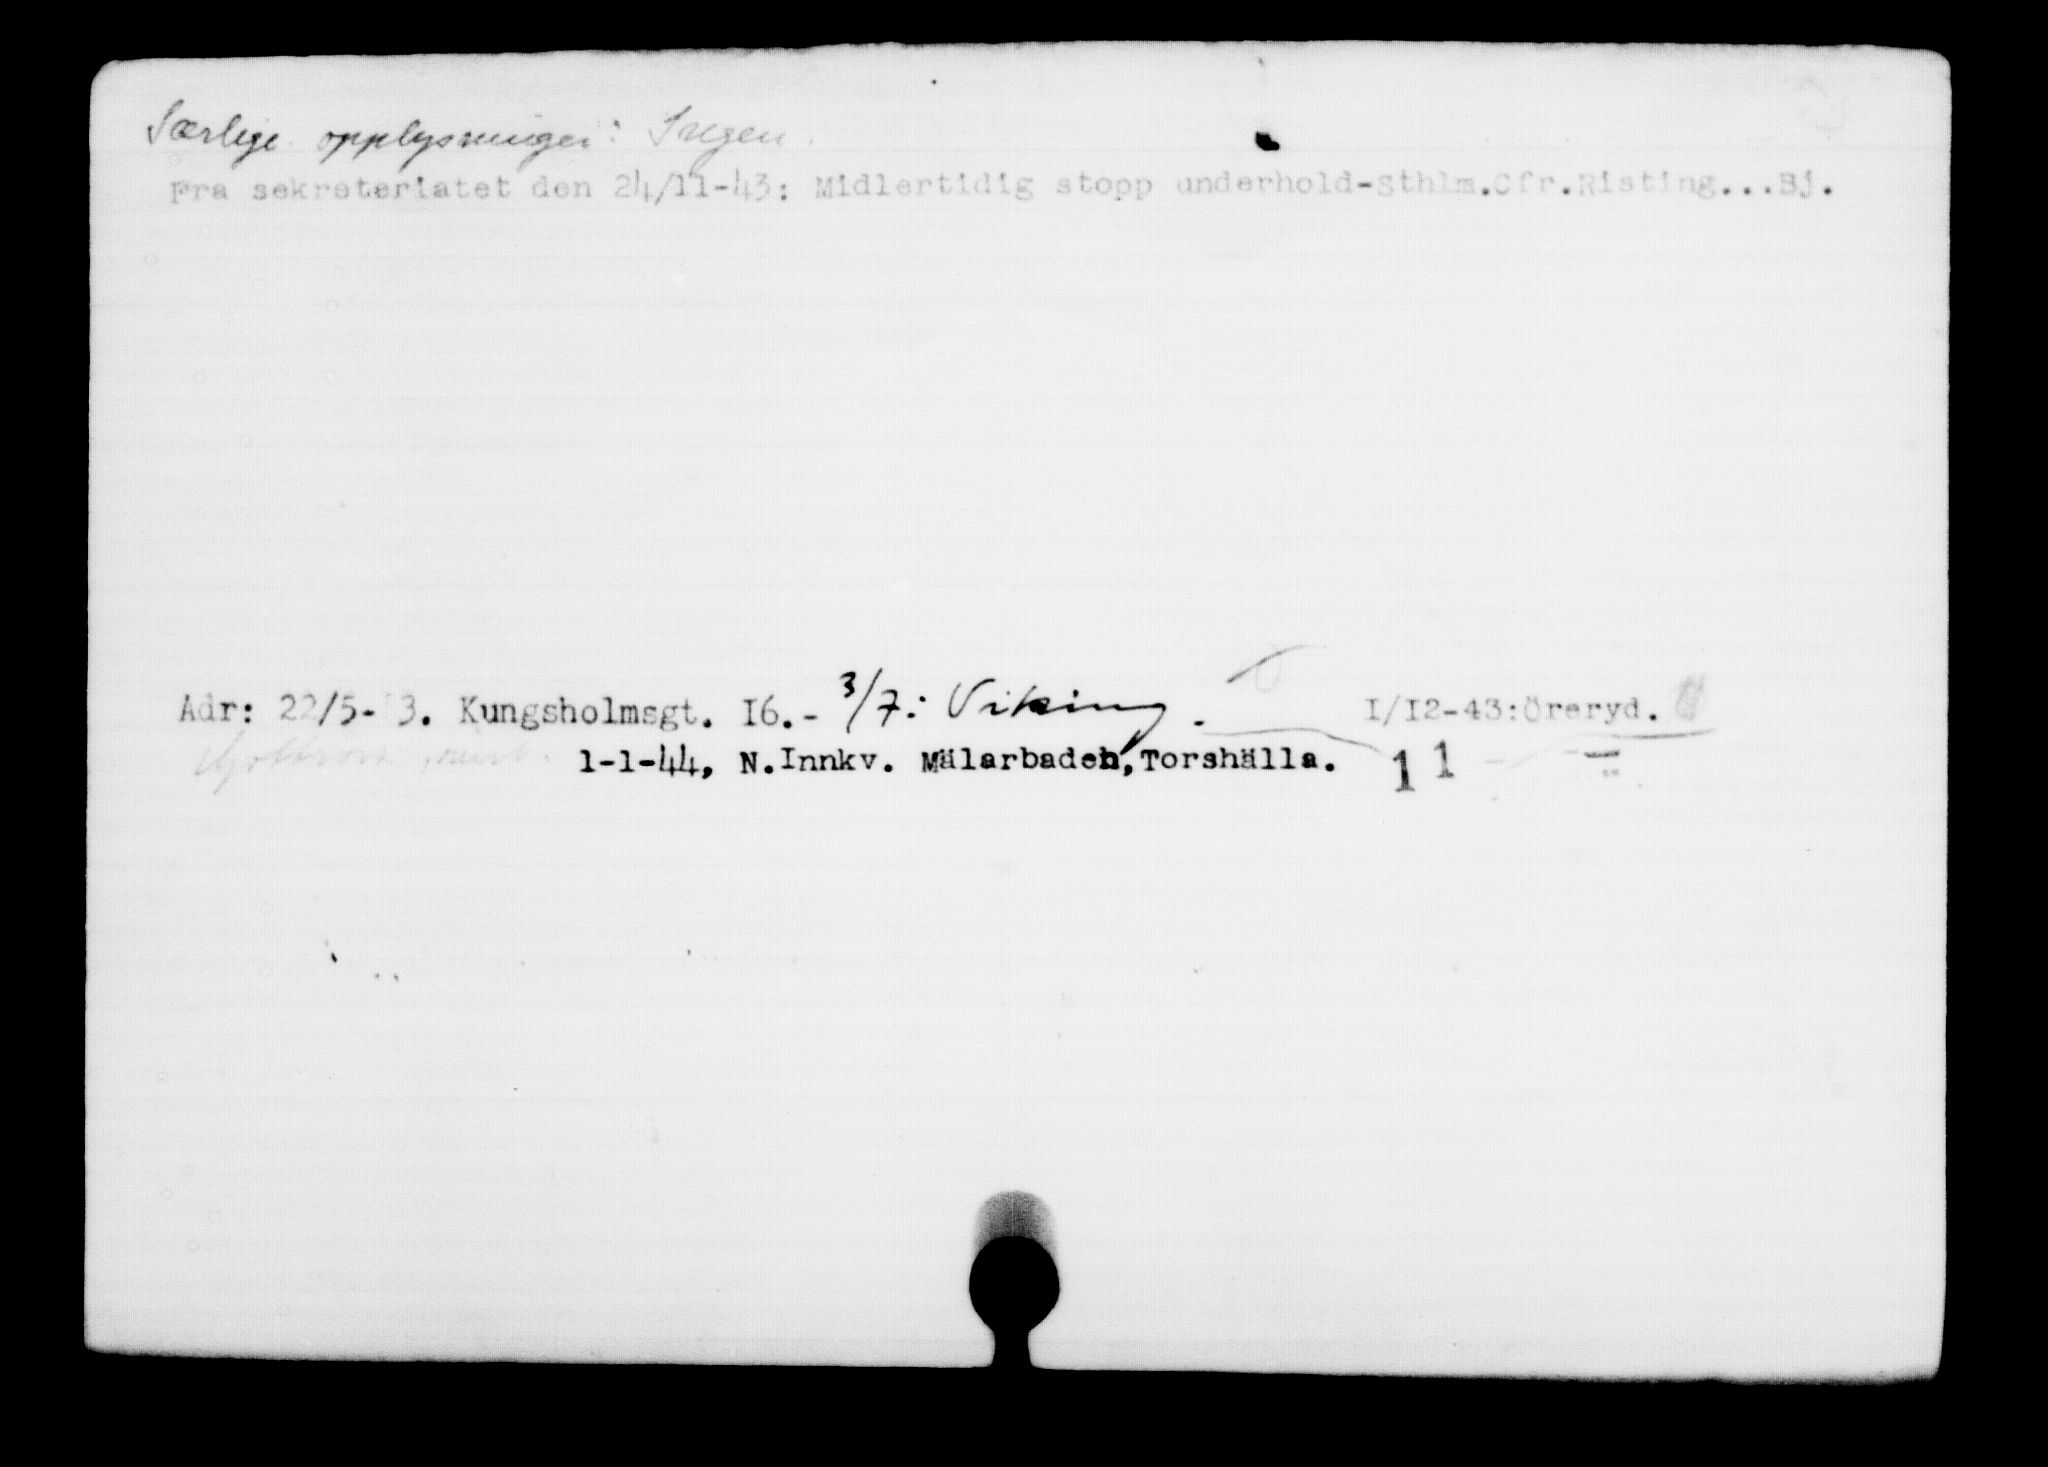 Særlige opplysninger: Ingen.
Fra sekretariatet den 24/11-43: Midlertidig stopp underhold-Sthlm.Cfr.Risting...Bj.
Adr: 22/5- 3. Kungsholmsgt. I6.- 3/7: Viking. I/I2-43:Öreryd.
1-1-44, N.Innkv. Mälarbaden,Torshälla. 1 1